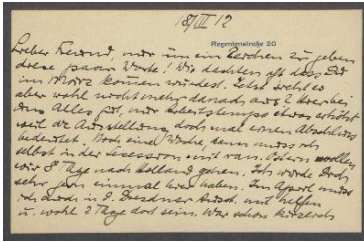 18/III 12
Regentenstraße 20
Lieber Freund nur um ein Zeichen zu geben
diese paar Worte! Wir dachten oft dass Du
im März kommen würdest. Jetzt sieht es
aber wohl nicht mehr danach aus?
uns Alles gut, nur Arbeitstempo etwas erhöht
weil die Ausstellung doch mal einen Abschluss
bedeutet. Noch eine Woche, dann muss ich
selbst in der Secession mit ran. Ostern wollen
wir 8 Tage nach Holland gehen. Ich würde Dich
sehr gern einmal hier haben. Im April muss
ich auch in d. Dresdner Ausst. mit helfen
u. wohl 2 Tage dort sein. War schon kürzlich